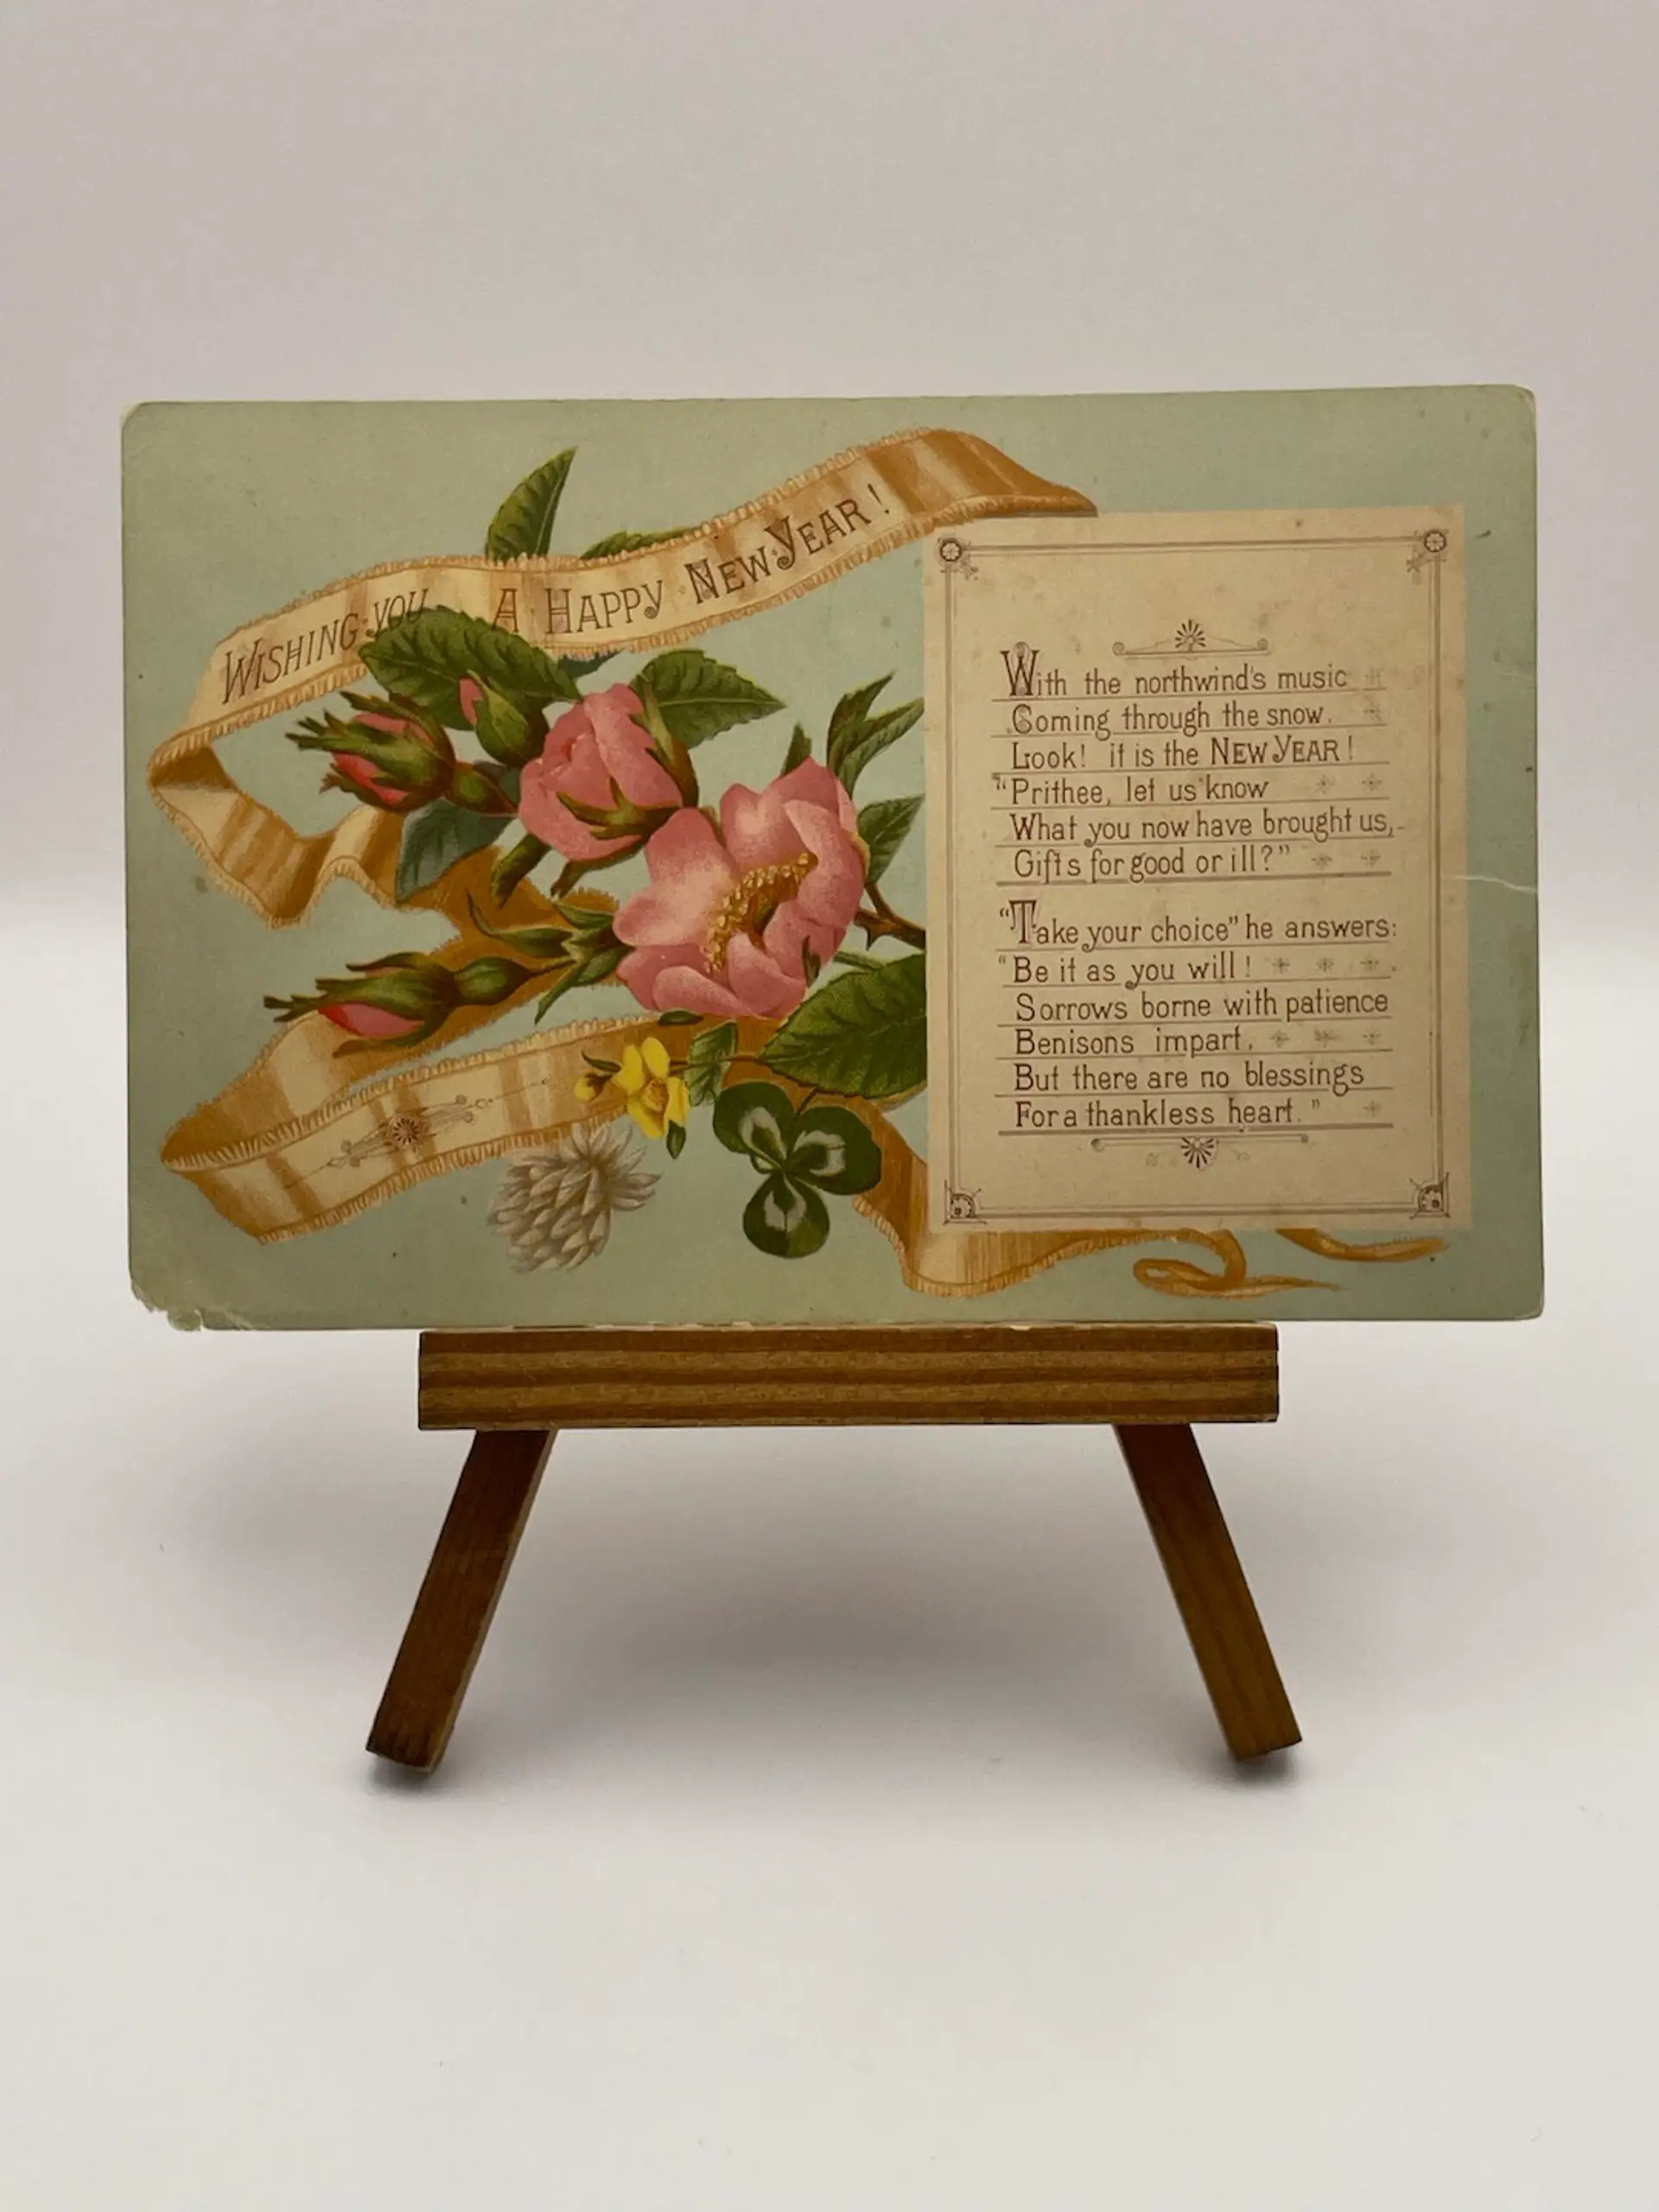 WISHING YOU A HAPPY NEW YEAR!
With the northwind's music
Coming through the snow.
Look! it is the NEW YEAR!
"Prithee, let us know
What you now have brought us,-
Gifts for good or ill?"
"Take your choice" he answers:
"Be it as you will!
Sorrows borne with patience
Benisons impart,
But there are no blessings
For a thankless heart."